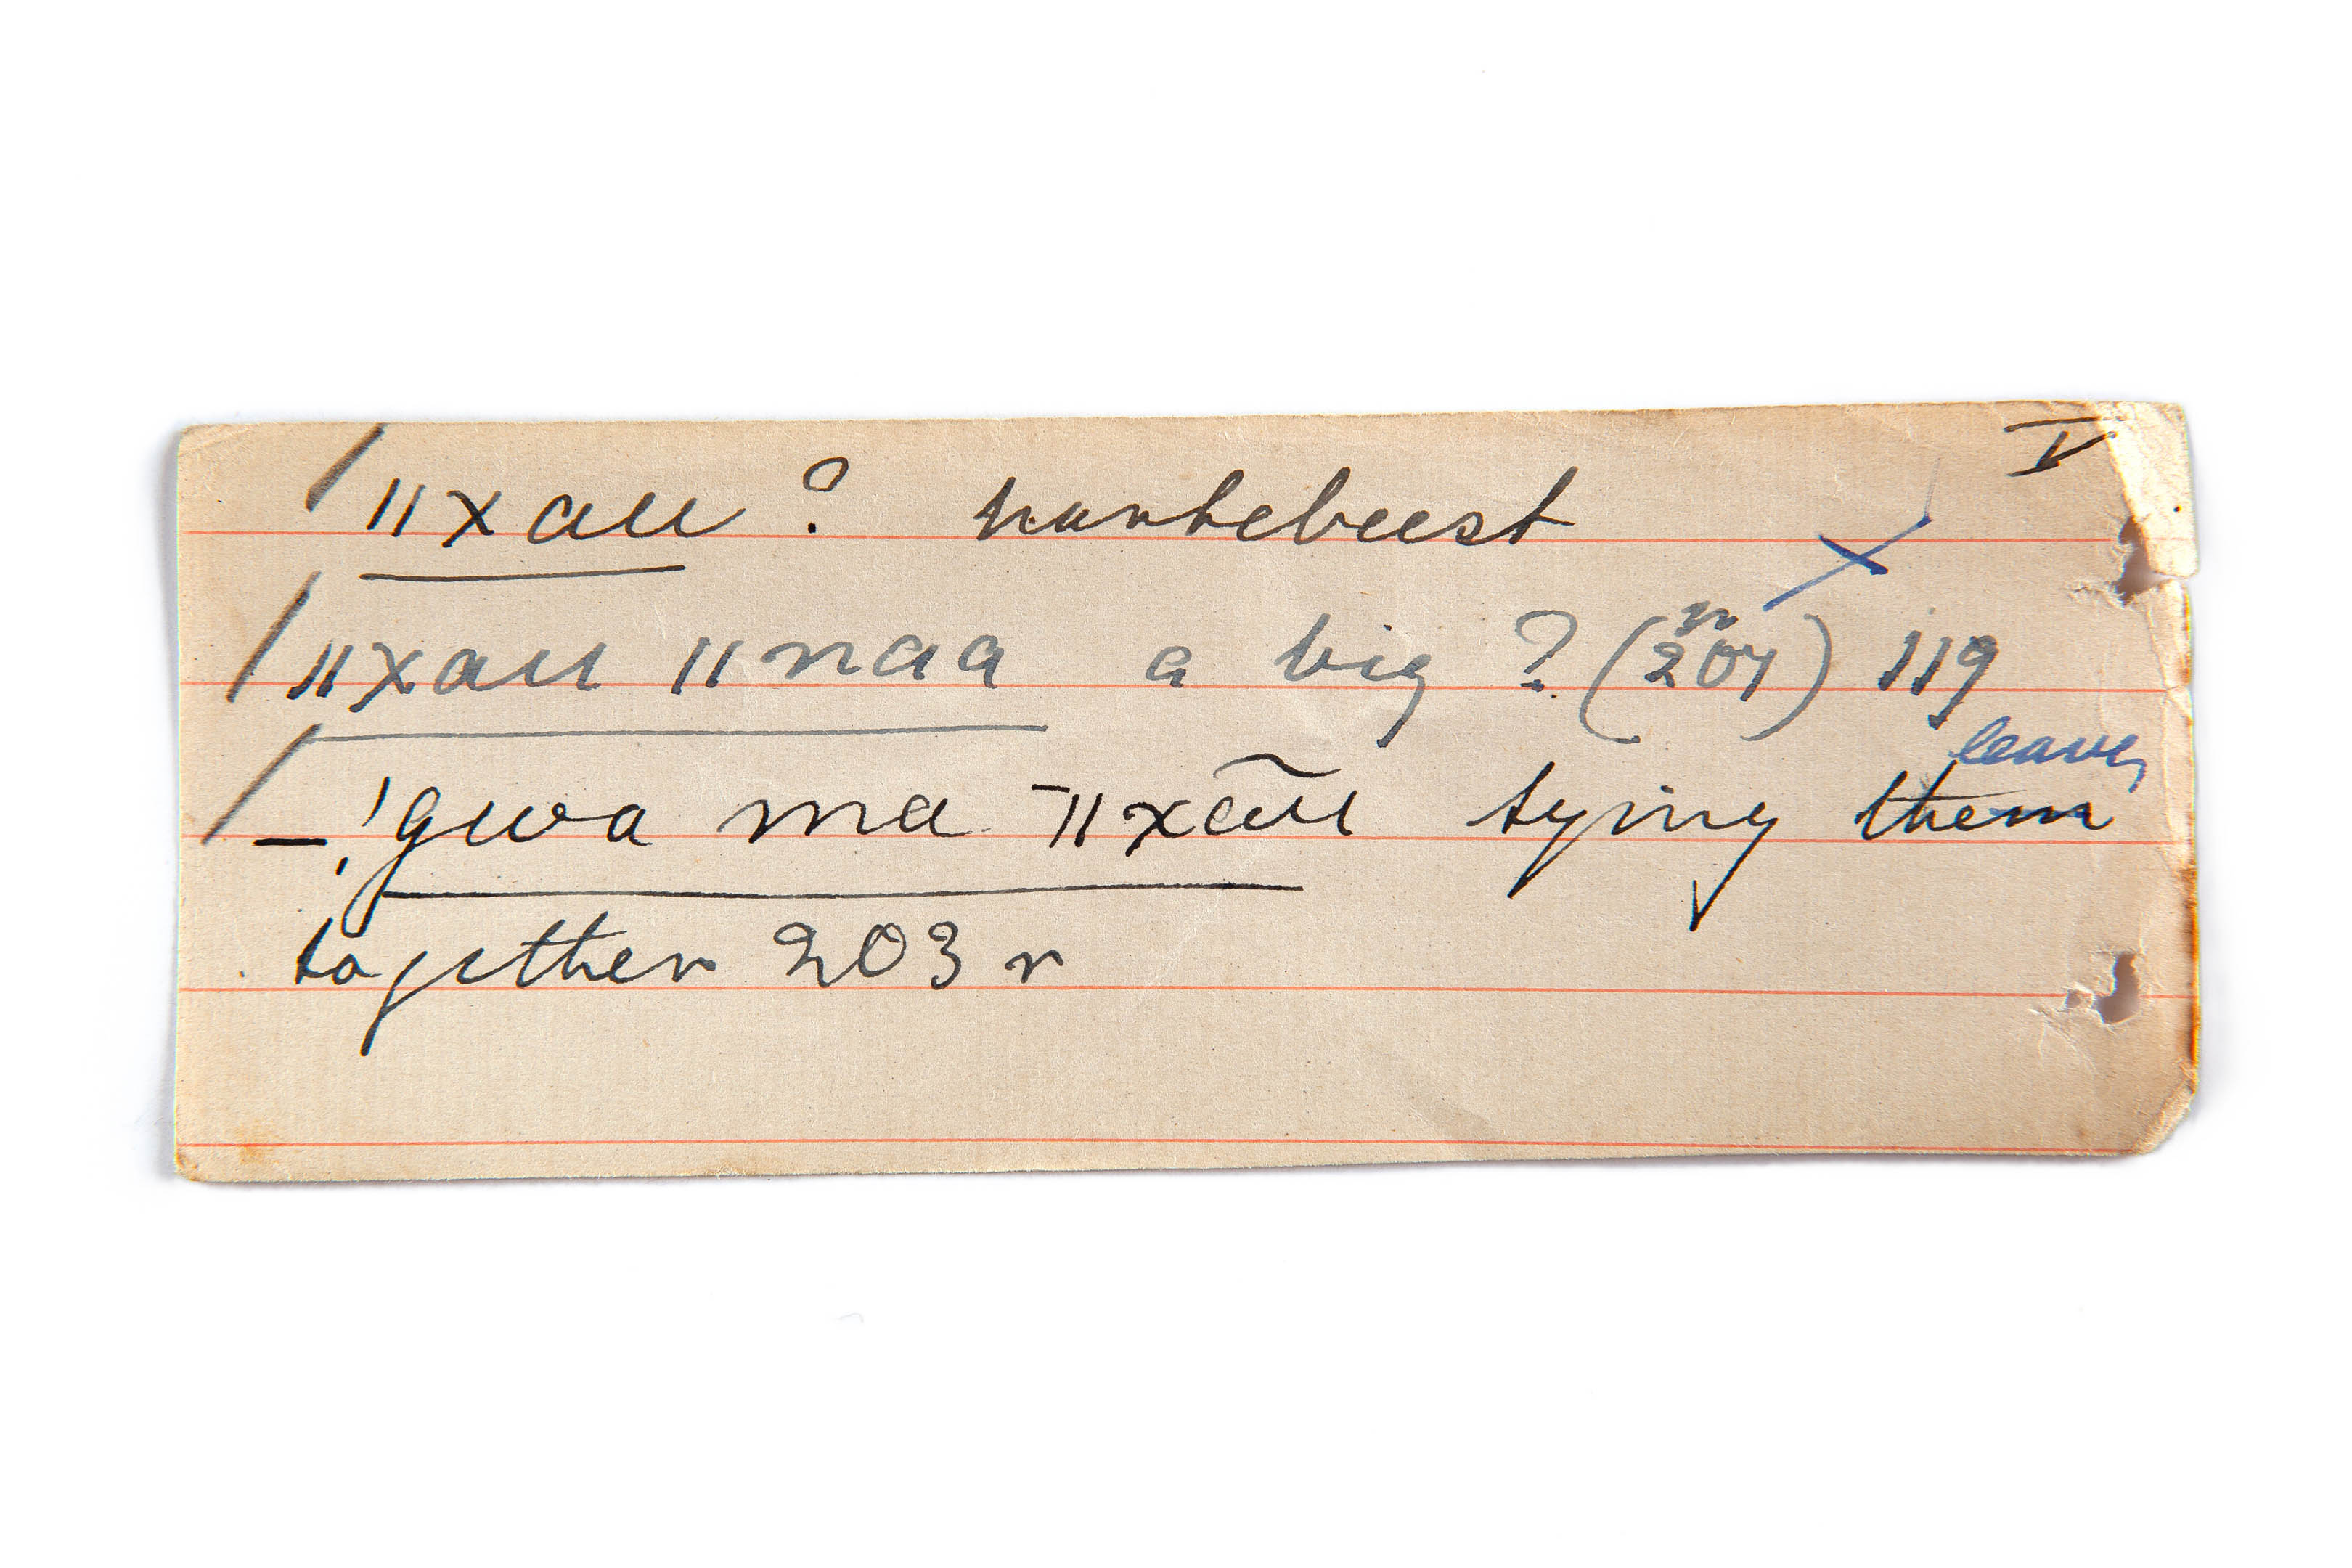 V
ǁxau ? hartebeest
ǁxau ǁnaa a big ? (207) 119
leaves
– !gwa ma ¯ǁxãu tying them
together 203 r